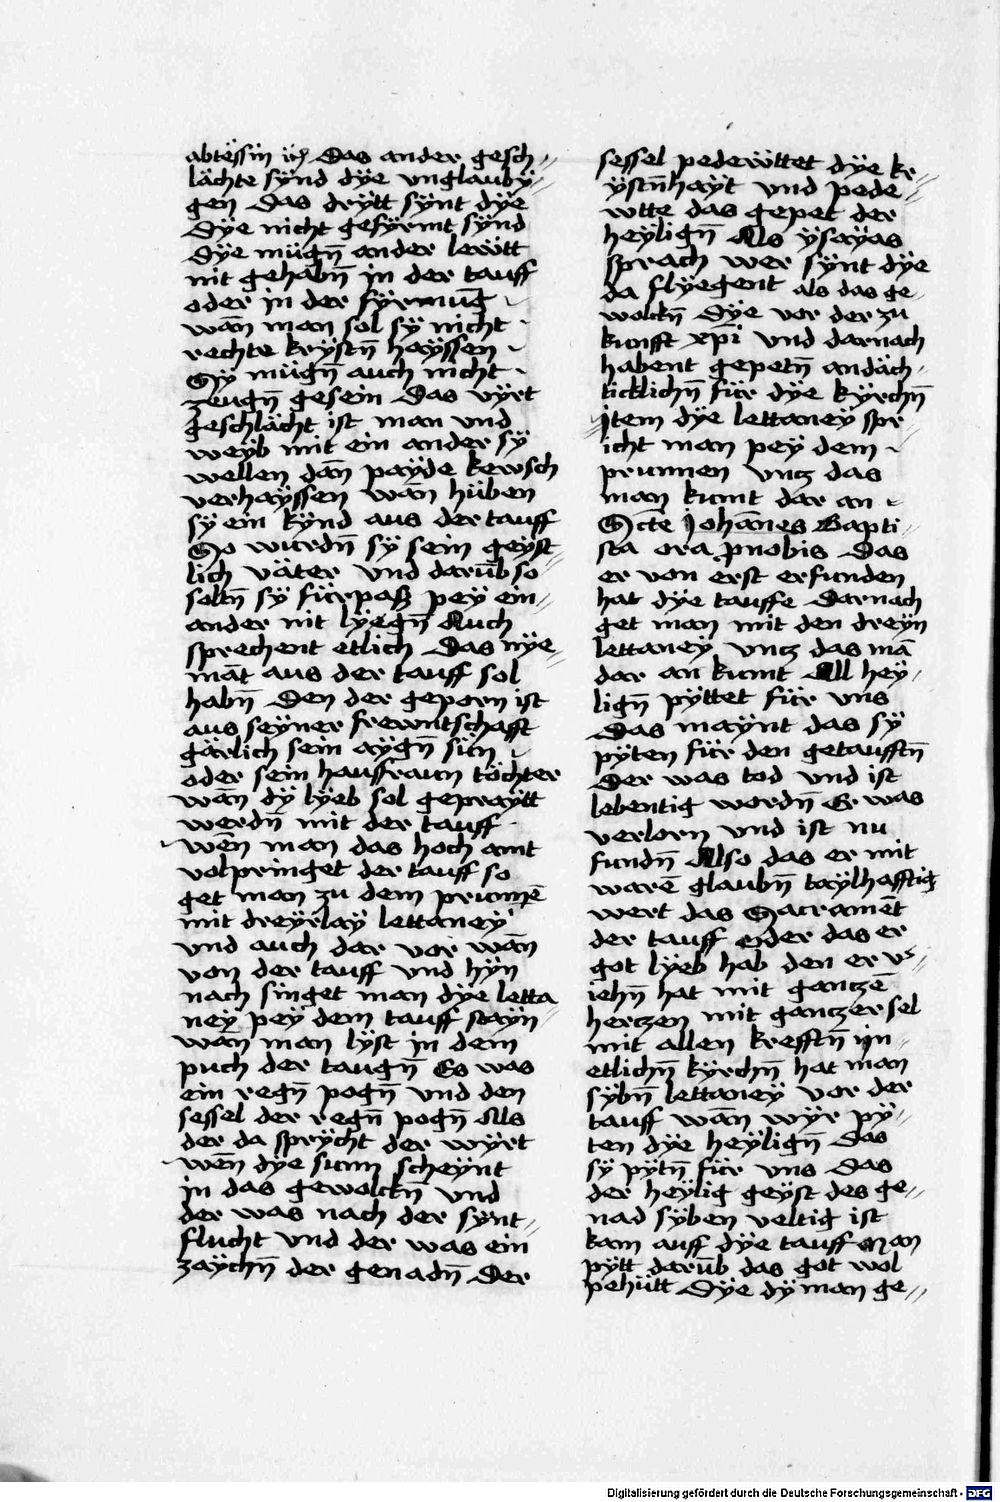 abtëssin ich Das ander gesch⸗
lächte sÿnd dÿe vnglaubÿ⸗
gen Das drÿtt sÿnt dÿe
dÿe nicht gefÿrmt sÿnd
dÿe mügn̄ ander lewtt
nit gehabn̄ in der tauff
oder in der fÿrmūg
wan̄ man sol sÿ nicht
rechte krÿstn̄ haÿssen
Sÿ mügn̄ auch nicht
zeugn̄ gesein Das vÿrt
geschlächt ist man vnd
weÿb mit ein ander sÿ
wellen dan̄ paÿde kewsch
verhaÿssen wan̄ hüben
sÿ ein kÿnd aus der tauff
So wurdn̄ sÿ sein geÿst
lich väter vnd darūb so
soltn̄ sÿ fürpaß peÿ ein⸗
ander nit lÿegn̄ Auch
sprechent etlich Das nÿe⸗
māt aus der tauff sol
habn̄ Den der geporn ist
aus seÿner frewntschafft
gärlich sein aÿgn̄ sün
oder sein hausfraun töchter
wan̄ dÿ lÿeb sol gepraÿtt
werdn̄ mit der tauff
wen̄ man das hoch amt
volpringet der tauff so
get man zu dem prunnē
mit dreÿrlaÿ lettaneÿ
vnd auch dar vor wan̄
von der tauff vnd hÿn
nach singet man dÿe letta
neÿ peÿ dem tauff staÿn
wan̄ man lÿst in dem
puch der taugn̄ Es was
ein regn̄ pogn̄ vnd den
sessel der regn̄ pogn̄ Als
der da sprÿcht der wÿrt
wen̄ dÿe sunn scheÿnt
in das gewolckn̄ vnd
der was nach der sÿnt⸗
flucht vnd der was ein
zaÿchn̄ der genadn̄ Der
sessel pedewttet dÿe kr⸗
ÿstn̄haÿt vnd pede
wtte das gepet der
heÿlign̄ Als ÿsaÿas
sprach wer sÿnt dÿe
da flÿegent als das ge⸗
wolckn̄ dÿe vor der zu
kunfft xp̄i vnd darnach
habent gepetn̄ andäch⸗
ticklichn̄ für dÿe kÿrchn̄
Item dÿe lettaneÿ spr⸗
icht man peÿ dem
prunnen vntz das
man kumt dar an
Sc̄te Johan̄es Bapti⸗
sta ora p̱nobis Das
er von erst erfunden
hat dÿe tauffe Darnach
get man mit den dreÿn
lettaneÿ vntz das mā
dar an kumt All heÿ⸗
lign̄ pÿttet für vns
Das maÿnt das sÿ
pÿten für den getaufftn̄
Der was tod vnd ist
lebentig wordn̄ Er was
verlorn vnd ist nu
fundn̄ Also das er mit
warē glaubn̄ taÿlhafftig
wert das Sacramēt
der tauff oder das er
got lÿeb hab den er vs⸗
iehn̄ hat mit gantzē
hertzen mit gantzer sel
mit allen krefftn̄ in⸗
etlichn̄ kÿrchn̄ hat man
sÿbn̄ lettaneÿ vor der
tauff wan̄ wÿr pÿ⸗
ten dÿe heÿlign̄ Das
sÿ pÿtn̄ für vns Das
der heÿlig geÿst des ge⸗
nad sÿben veltig ist
kam auff dÿe tauff Man
pÿtt darūb das got wol
pehütt Dÿe dÿ man ge⸗
Digitalisierung gefördert durch die Deutsche Forschungsgemeinschaft - DFG